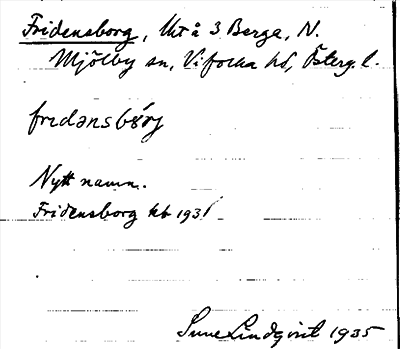 Fridensborg, Utå 3 Berga, N.
Mjölby sn, Vifolka hd, Österg. l.
fridənsbórj
Nytt namn.
Fridensborg kb 1931
Sune Lindqvist 1935